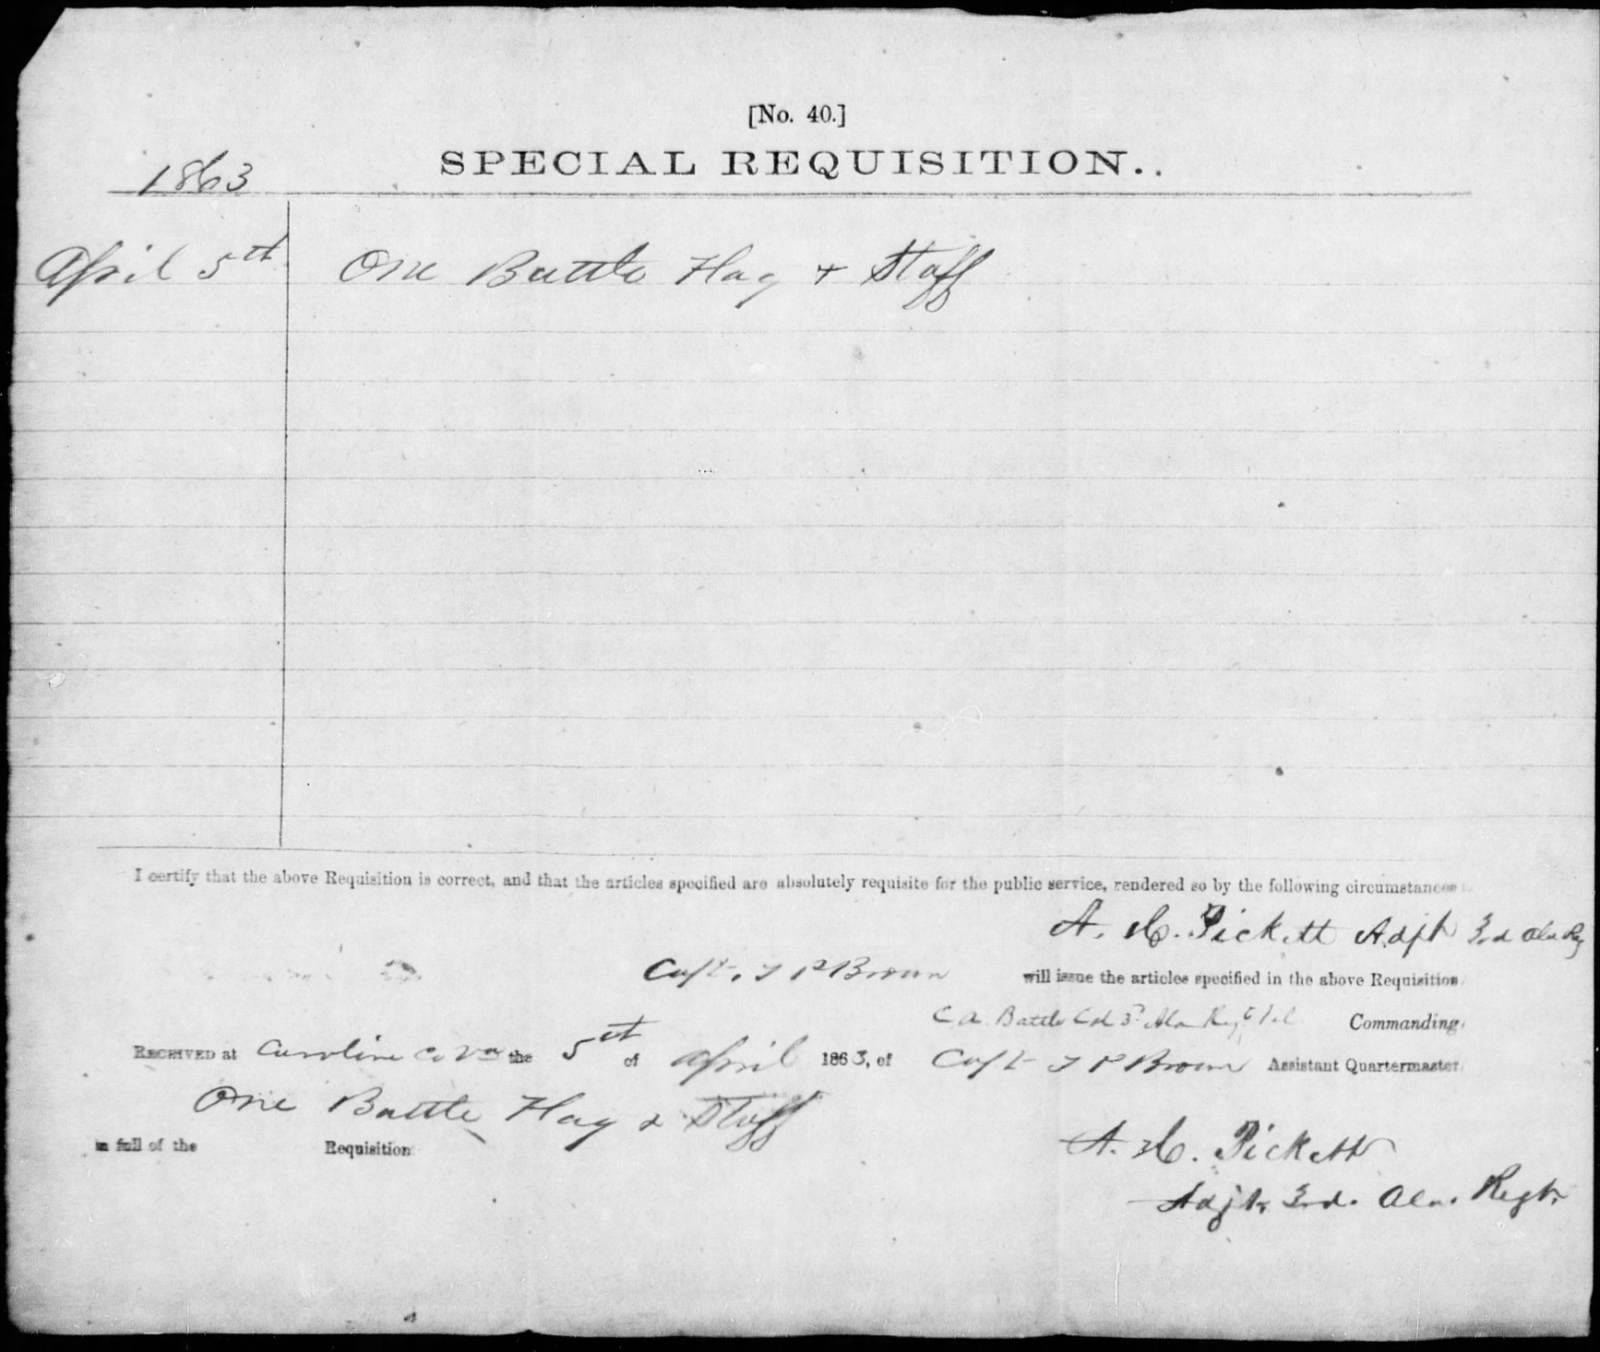 [No. 40.]
SPECIAL REQUISITION..
1863
April 5th One Battle Flag + Staff
I certify that the above Requisition is correct, and that the articles specified are absolutely requisite for the public service, rendered so by the following circumstances
A. H. Pickett Adjt 3rd Ala Reg
Capt. T P Brown will issue the articles specified in the above Requisition
C A Battle Col 3d Ala Regt Commanding
RECEIVED at Caroline Co Va the 5th of April 1863, of Capt T P Brown Assistant Quartermaster
One Battle Flag & Staff
in full of the Requisition
A. H. Pickett
Adjt. 3rd. Ala. Regt.